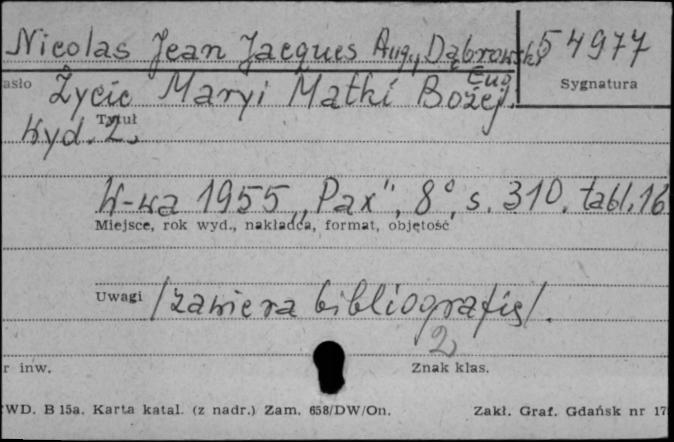 Nicolas Jean Jacques Aug., Dąbrowski Eug. 54977
asło Sygnatura
Życie Maryi Matki Bożej.
Tytuł
Wyd. 2.
W-wa 1955 „Pax", 8°, s. 310. tabl. 16
Miejsce, rok wyd., nakładca, format, objętość
Uwagi /zawiera bibliografię/.
2
r inw. Znak klas.
WD. B 15a. Karta katal. (z nadr.) Zam. 658/DW/On. Zakł. Graf. Gdańsk nr 17